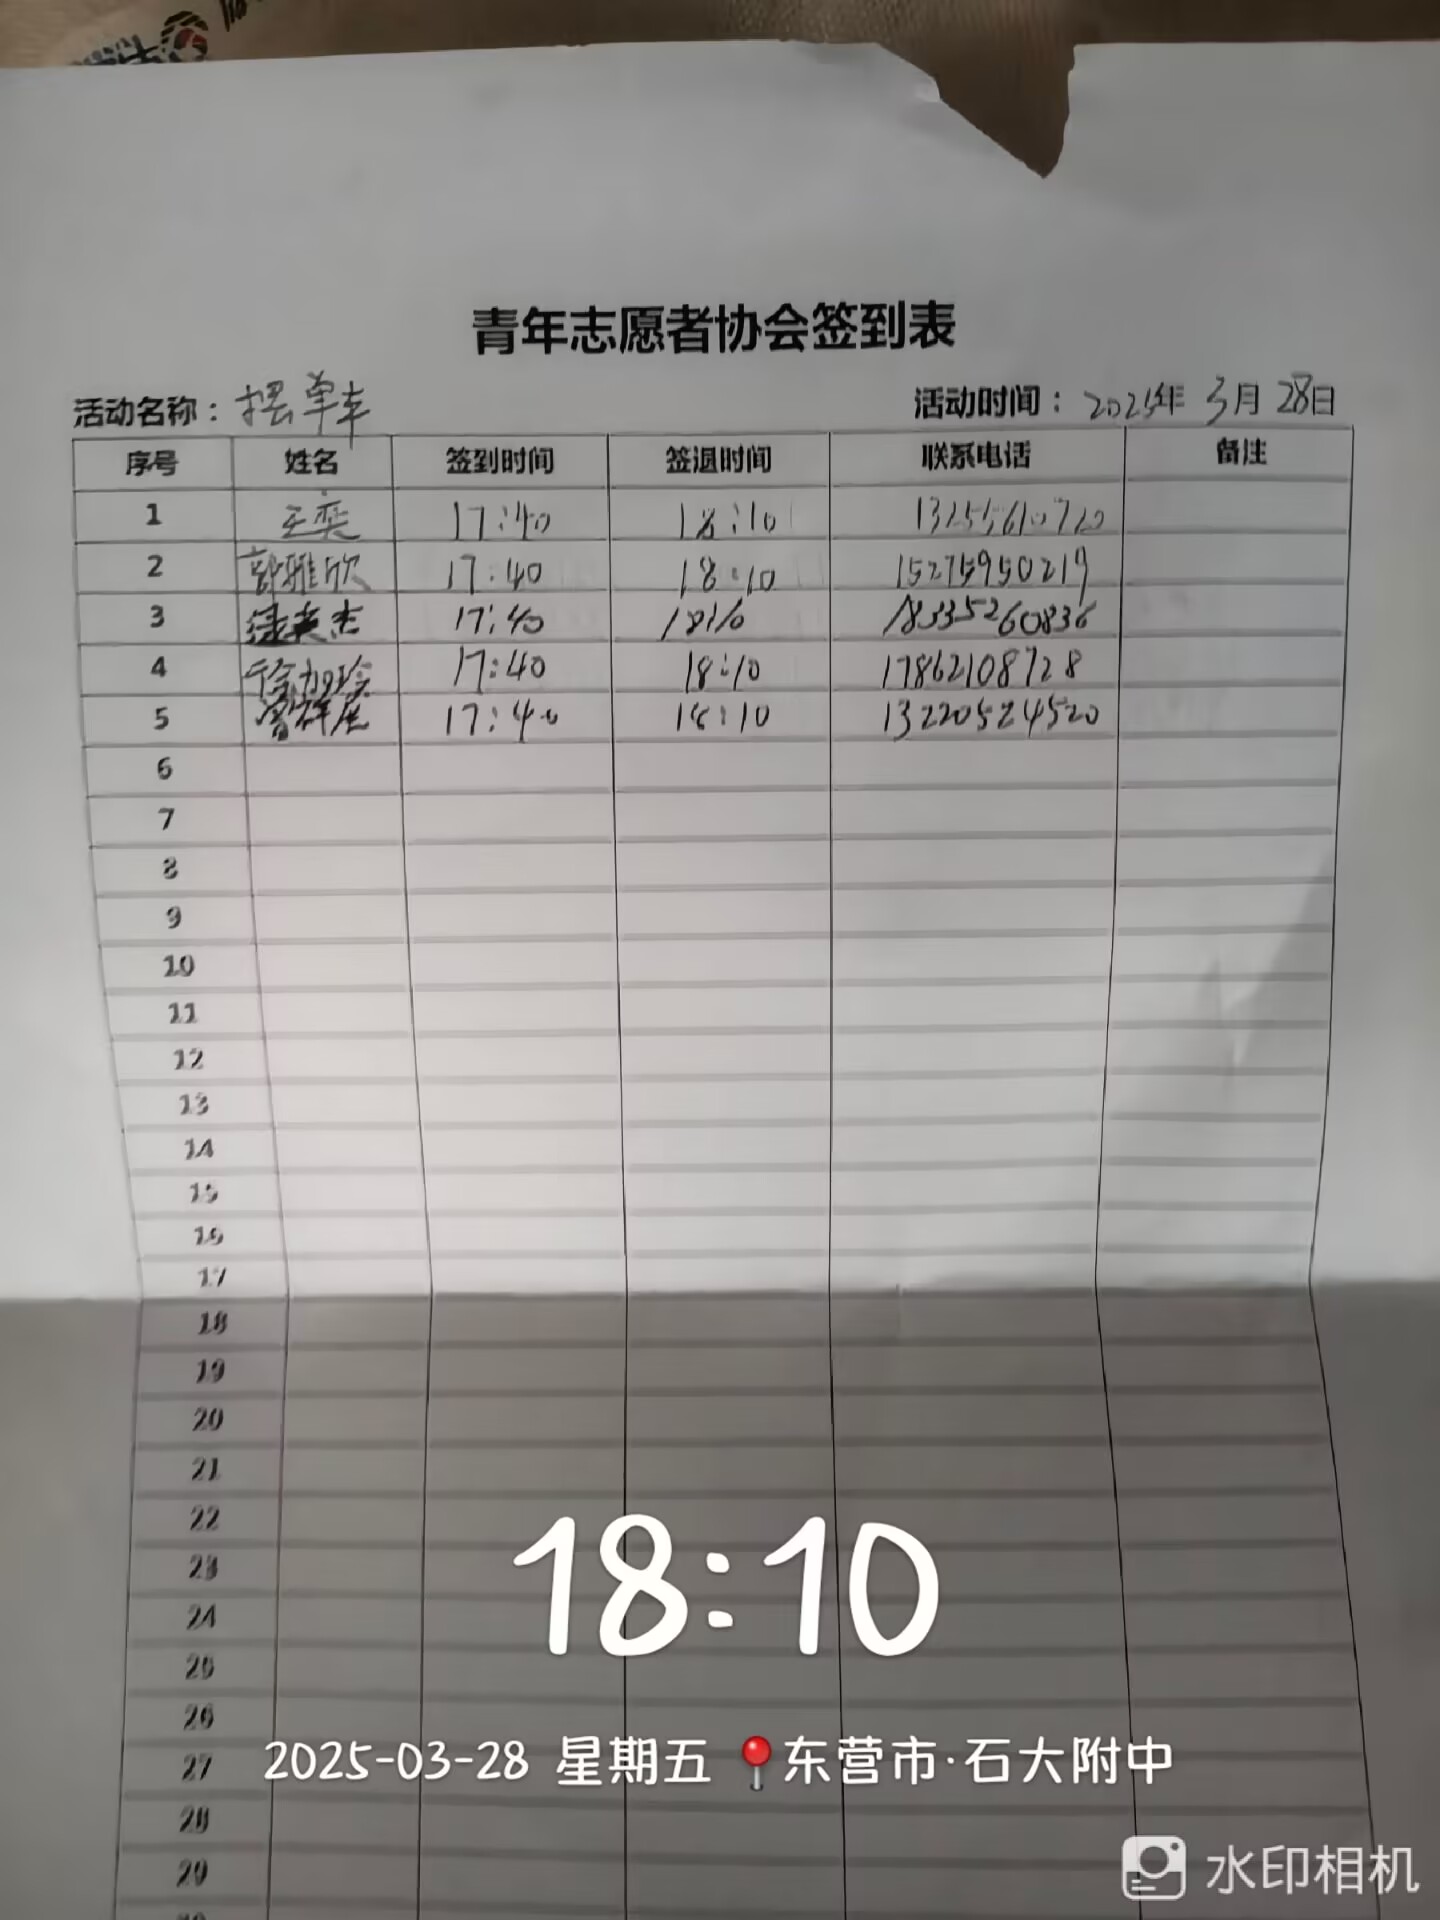 青年志愿者协会签到表
活动名称：摆单车 活动时间：2025年3月28日
序号 姓名 签到时间 签退时间 联系电话 备注
1 王奕 17:40 18:10 13255610720
2 郭雅欣 17:40 18:10 15275950219
3 17:40 18:10 18335260836
4 徐加珍 17:40 18:10 17862108728
5 17:40 18:10 13220524520
6
7
8
9
10
11
12
13
14
15
16
17
18
19
20
21
22
23
24
25
26
27
28
29
18:10
2025-03-28 星期五 东营市·石大附中
水印相机